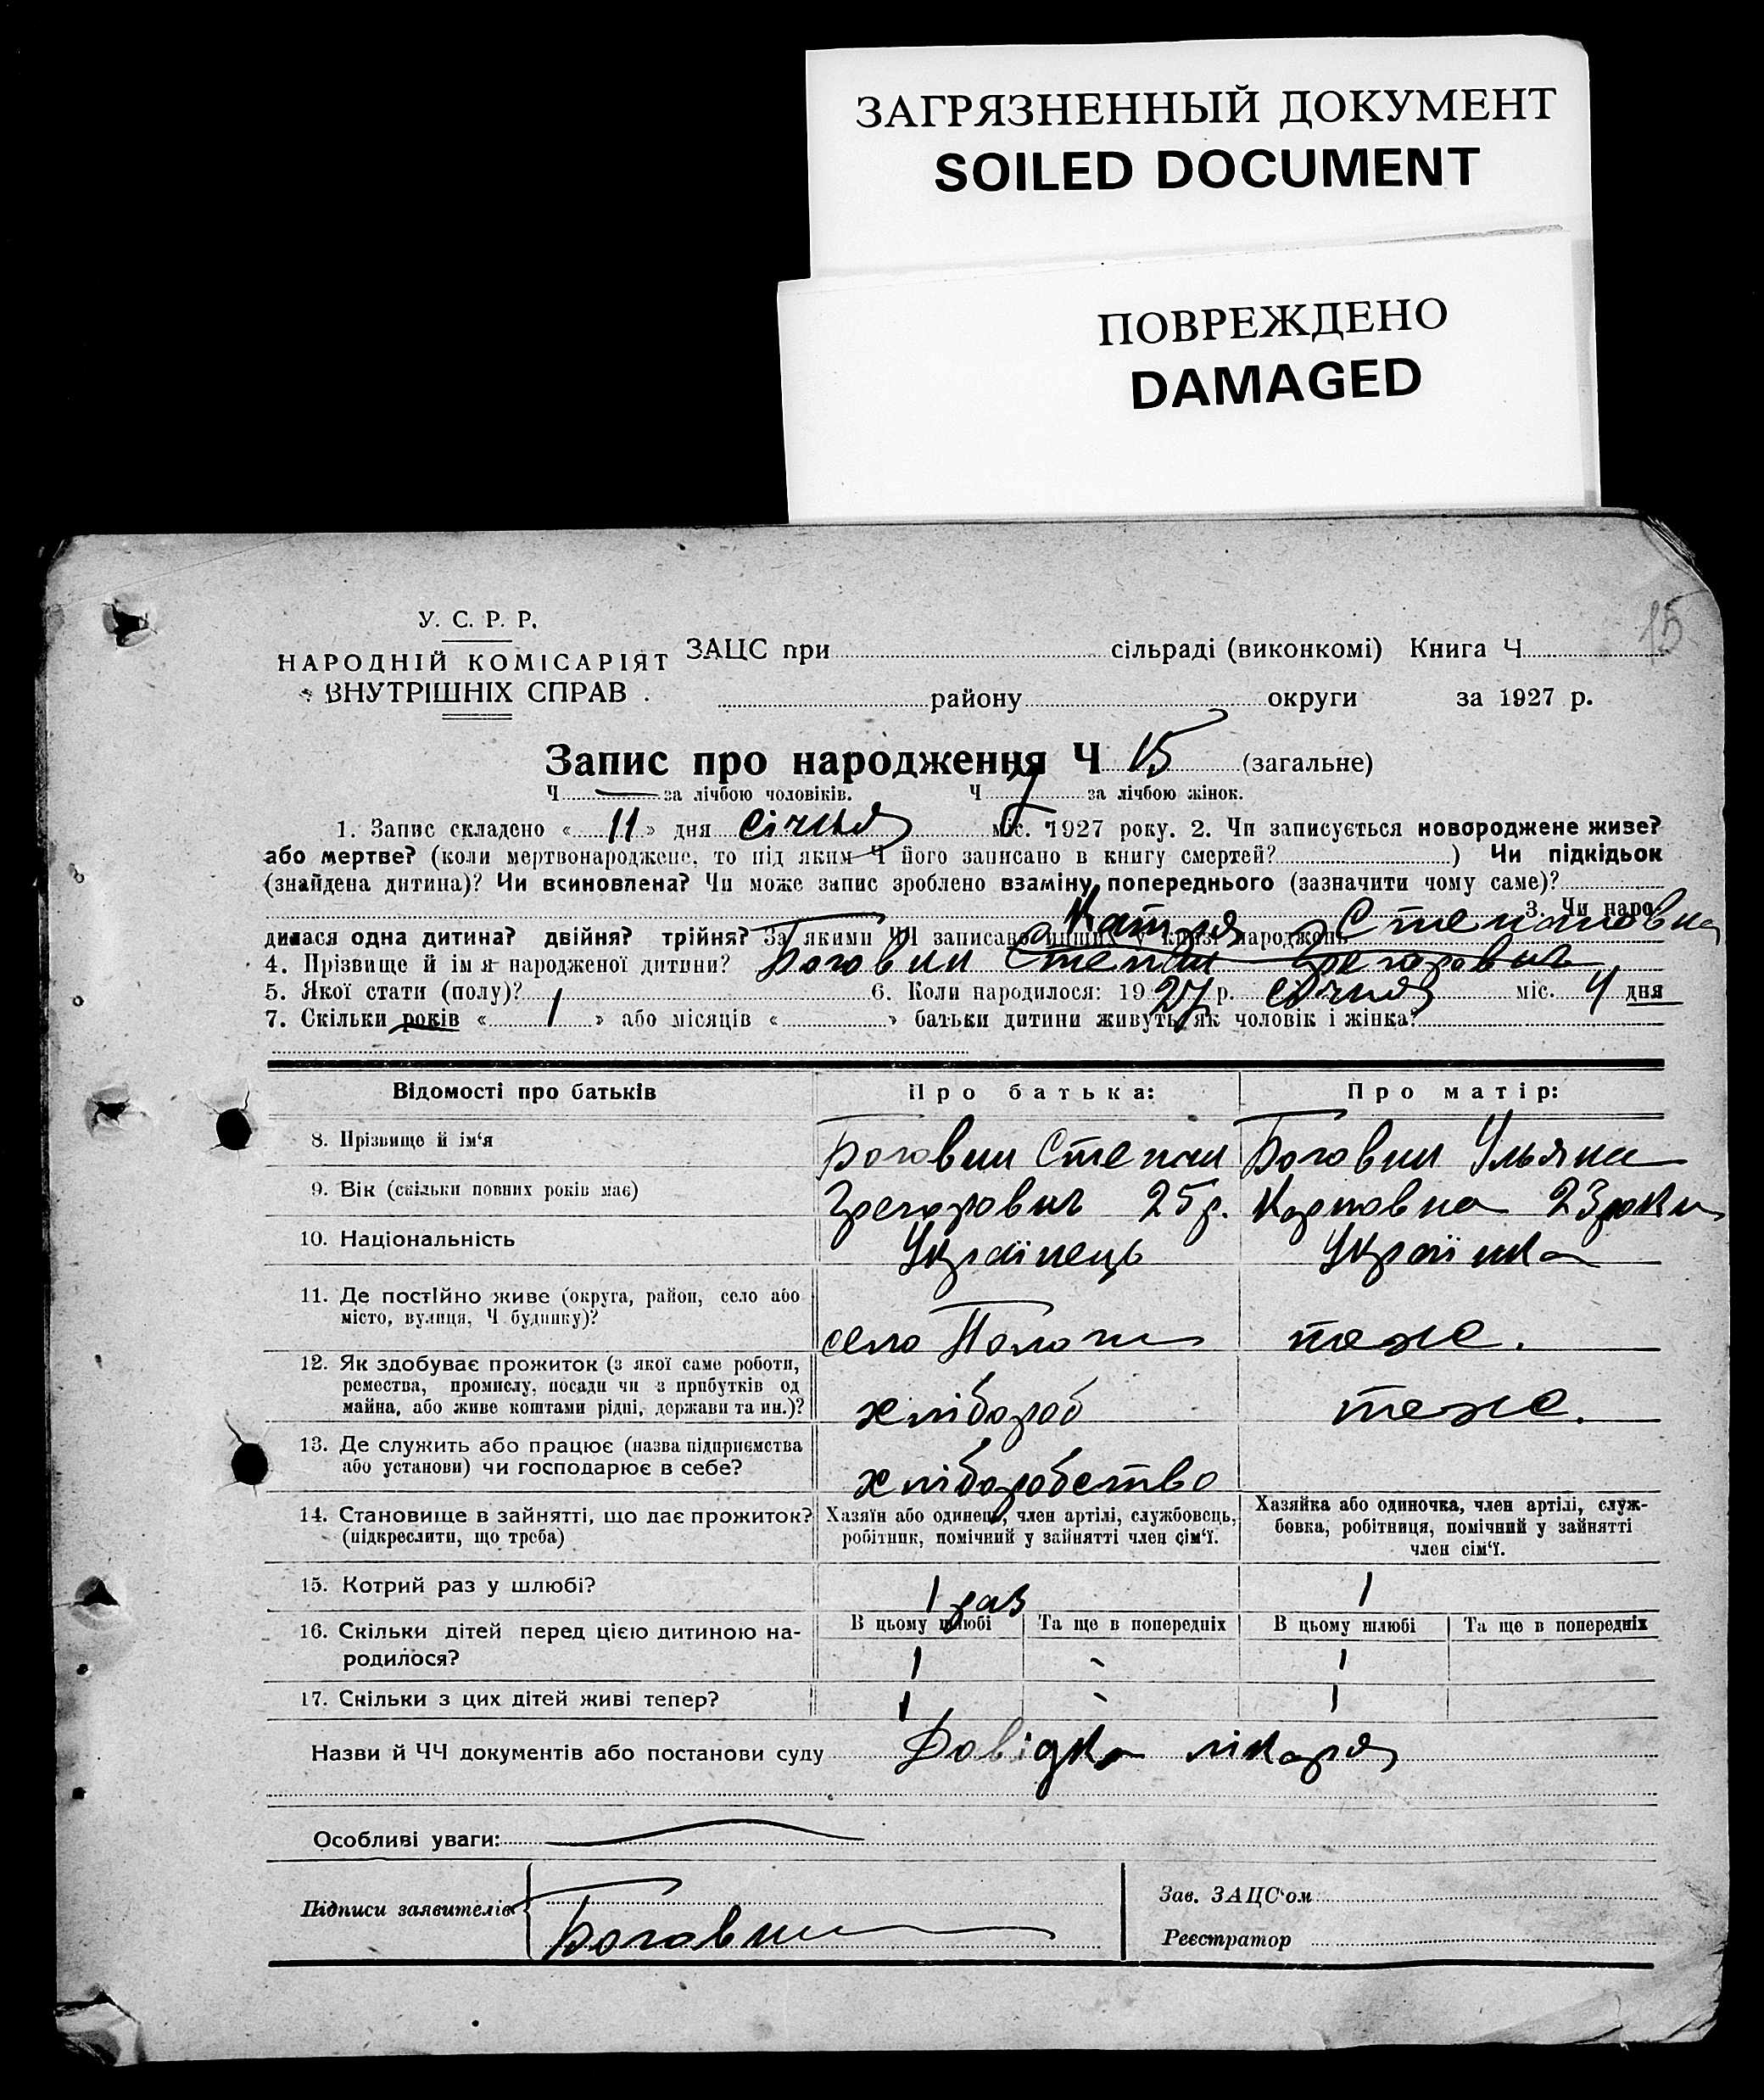 ЗАГРЯЗНЕННЫЙ ДОКУМЕНТ
SOILED DOCUMENT
ПОВРЕЖДЕНО
DAMAGED
15
У. С. Р. Р.
НАРОДНІЙ КОМІСАРІЯТ
ВНУТРІШНІХ СПРАВ
ЗАЦС при сільраді (виконкомі) Книга Ч
району округи за 1927 р.
Запис про народження Ч 15 (загальне)
Ч — за лічбою чоловіків. Ч 7 за лічбою жінок.
1. Запис складено « 11 » дня січня міс. 1927 року. 2. Чи записується новороджене живе?
або мертве? (коли мертвонароджене, то під яким Ч його записано в книгу смертей? ) Чи підкідьок
(знайдена дитина)? Чи всиновлена? Чи може запис зроблено взаміну попереднього (зазначити чому саме)?
3. Чи наро-
Катря Степановна
дилася одна дитина? двійня? трійня? За якими ЧЧ записано инших у книзі народжень
4. Прізвище й ім'я народженої дитини? Боговин Степан Грегорович
5. Якої стати (полу)? 6. Коли народилося: 1927 р. січня міс. 4 дня
7. Скільки років « 1 » або місяців « » батьки дитини живуть як чоловік і жінка?
Відомості про батьків Про батька: Про матір:
8. Прізвище й ім'я Боговин Степан Боговин Ульяна
9. Вік (скільки повних років має) Грегорович 25 р. Карповна 23 роки
10. Національність Українець Українка
11. Де постійно живе (округа, район, село або
місто, вулиця, Ч будинку)? село тоже.
12. Як здобуває прожиток (з якої саме роботи,
ремества, промислу, посади чи з прибутків од
майна, або живе коштами рідні, держави та ин.)? хлібороб тоже.
13. Де служить або працює (назва підприємства
або установи) чи господарює в себе? хліборобство
14. Становище в зайнятті, що дає прожиток?
(підкреслити, що треба)
Хазяїн або одинець, член артілі, службовець,
робітник, помічний у зайнятті член сім'ї.
Хазяйка або одиночка, член артілі, служ-
бовка, робітниця, помічний у зайнятті
член сім'ї.
15. Котрий раз у шлюбі? 1 раз 1
В цьому шлюбі Та ще в попередніх В цьому шлюбі Та ще в попередніх
16. Скільки дітей перед цією дитиною на-
родилося? 1 1
17. Скільки з цих дітей живі тепер? 1 1
Назви й ЧЧ документів або постанови суду Довідка лікаря
Особливі уваги:
Підписи заявителів Боговин
Зав. ЗАЦС'ом
Реєстратор